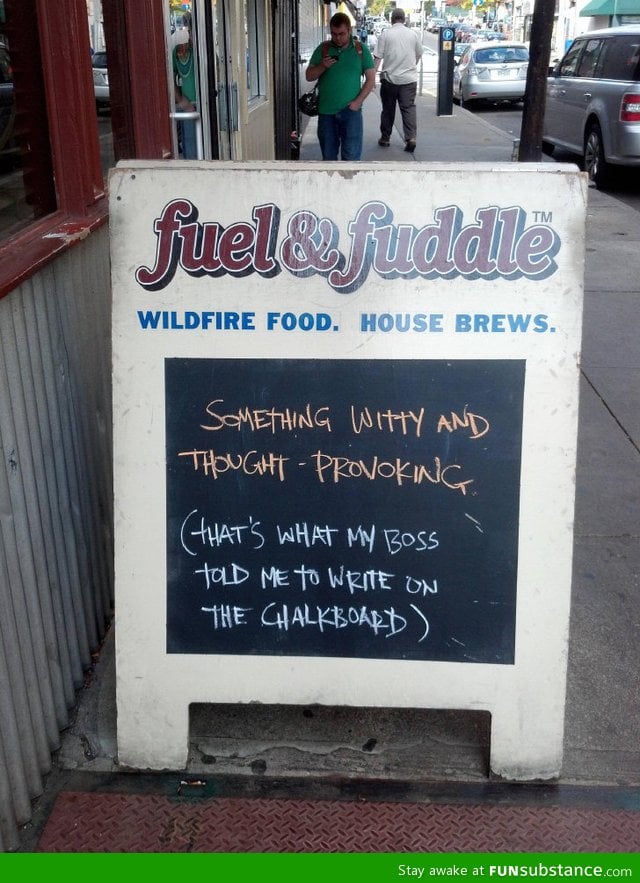 fuel & fuddle™
WILDFIRE FOOD. HOUSE BREWS.
SOMETHING WITTY AND
THOUGHT-PROVOKING
(THAT'S WHAT MY BOSS
TOLD ME TO WRITE ON
THE CHALKBOARD)
Stay awake at FUNsubstance.com